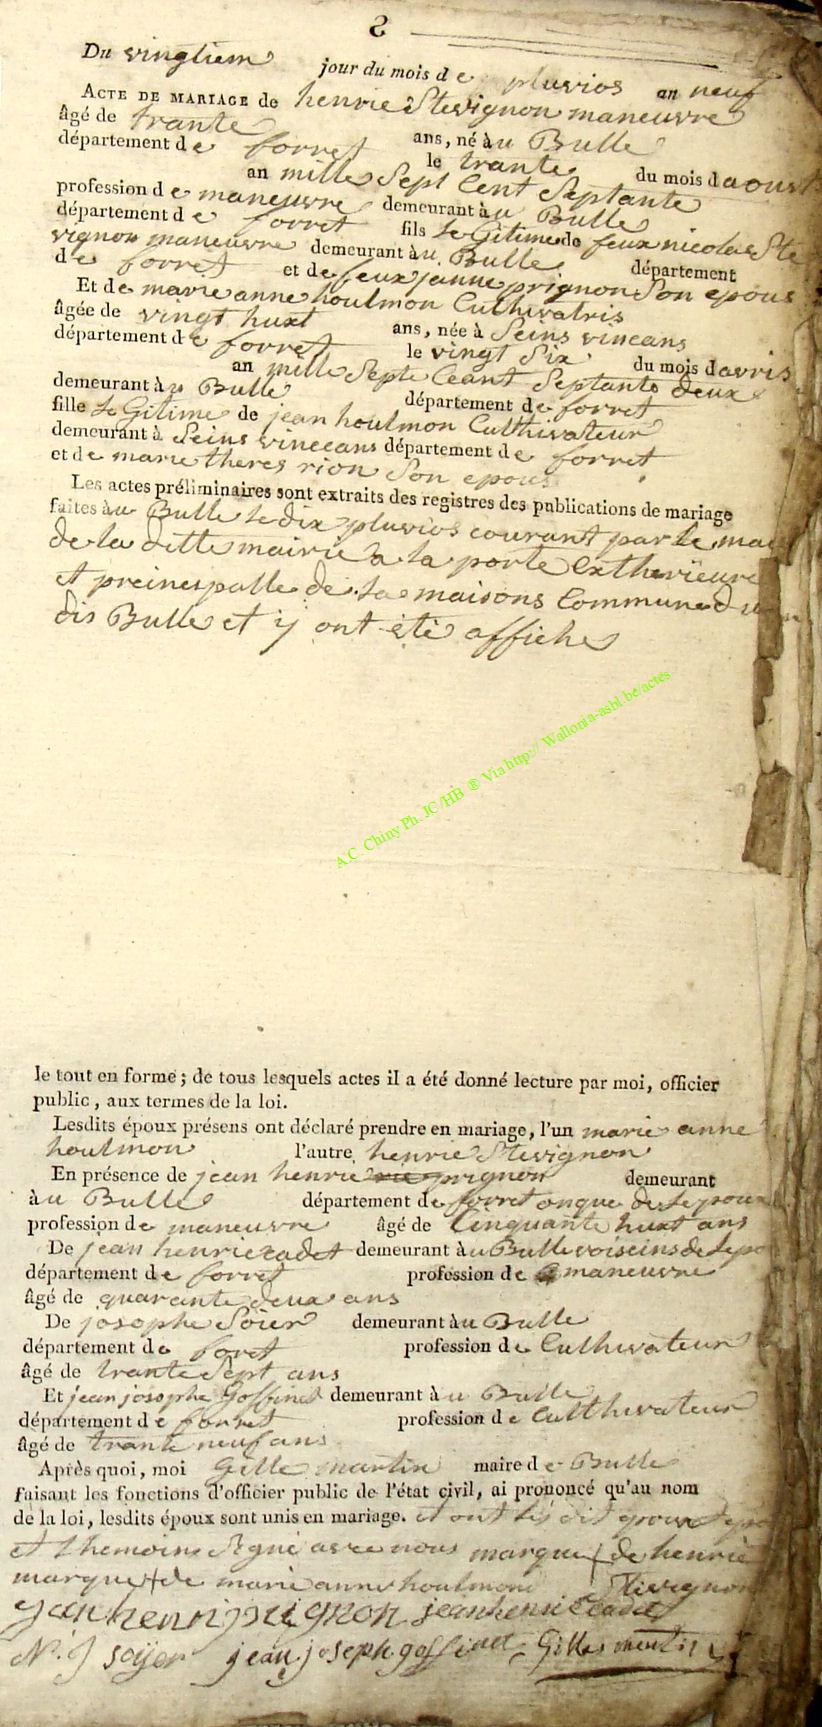 8
Du vingtiem jour du mois de pluvios an neuf
ACTE DE MARIAGE de henrie Stevignon maneuvre
âgé de trante ans, né àu Bulle
département de forret le trante du mois daoust
an mille Sept Cent Septante
profession de maneuvre demeurant àu Bulle
département de forret fils Le Gitime de feux nicolas Ste
vignon maneuvre demeurant àu Bulle département
de forret et de feux janne prignon Son epous
Et de marie anne houlmon Culthivatris
âgée de vingt huxt ans, née à Seins vinceans
département de forret le vingt Six du mois davris
an mille Septe Ceant Septante deux
demeurant àu Bulle département de forret
fille Le Gitime de jean houlmon Culthivateur
demeurant à Seins vincceans département de forret
et de marie theres rion Son epous
Les actes préliminaires sont extraits des registres des publications de mariage
faites àu Bulle Le dix pluvios courant par Le
de la ditte mairie a la porte Extherieure
et preinespalle de La maisons Commune
dis Bulle et y ont été affiche
A.C. Chiny Ph. JC/HB ® Via http:// Wallonia-asbl.be/actes
le tout en forme; de tous lesquels actes il a été donné lecture par moi, officier
public, aux termes de la loi.
Lesdits époux présens ont déclaré prendre en mariage, l'un marie anne
houlmon l'autre henrie Stevignon
En présence de jean henrie prignon demeurant
àu Bulle département de forret onque de Lepoux
profession de maneuvre âgé de Cinquante huxt ans
De jean henrie cadet demeurant àu Bulle voiseins de Lepo
département de forret profession de maneuvre
âgé de quarante deux ans
De josophe Soier demeurant àu Bulle
département de foret profession de Culthivateur
âgé de trante Sept ans
Et jean josophe Goffinet demeurant àu Bulle
département de forret profession de Culthivateur
âgé de trante neuf ans
Après quoi, moi Gille martin maire de Bulle
faisant les fonctions d'officier public de l'état civil, ai prononcé qu'au nom
de la loi, lesdits époux sont unis en mariage. et ont
et themoins Signé avec nous marque + de henrie
marque + de marie anne houlmon Stevignon
jean henri prignon jean henri Cadet
N. J soijer jean joseph goffinet Gilles martin